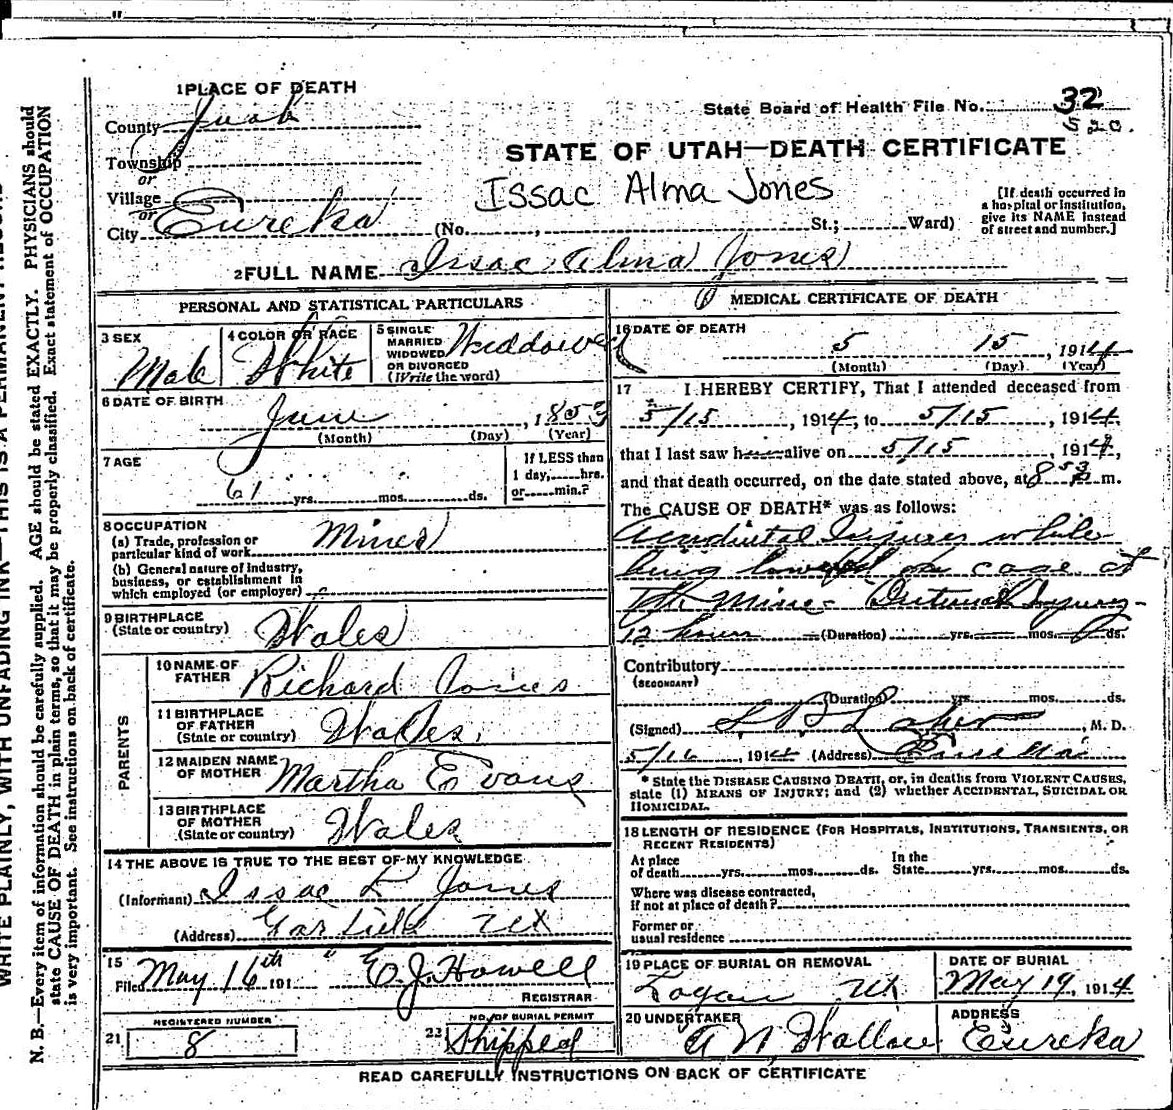 1 PLACE OF DEATH
County Juab
State Board of Health File No. 32
520.
Township
or
Village
or
City Eureka
STATE OF UTAH—DEATH CERTIFICATE
Issac Alma Jones
(No. , St.; Ward)
[If death occurred in
a hospital or institution,
give its NAME instead
of street and number.]
2 FULL NAME Issac Alma Jones
PERSONAL AND STATISTICAL PARTICULARS
3 SEX
Male
4 COLOR OR RACE
White
5 SINGLE
MARRIED
WIDOWED
OR DIVORCED
(Write the word)
Widdower
6 DATE OF BIRTH
June , 1853
(Month) (Day) (Year)
7 AGE
61 yrs. mos. ds.
If LESS than
1 day, hrs.
or min.?
8 OCCUPATION
(a) Trade, profession or
particular kind of work
Miner
(b) General nature of industry,
business, or establishment in
which employed (or employer)
9 BIRTHPLACE
(State or country)
Wales
PARENTS
10 NAME OF
FATHER
Richard Jones
11 BIRTHPLACE
OF FATHER
(State or country)
Wales
12 MAIDEN NAME
OF MOTHER
Martha Evans
13 BIRTHPLACE
OF MOTHER
(State or country)
Wales
14 THE ABOVE IS TRUE TO THE BEST OF MY KNOWLEDGE
(Informant) Issac L Jones
(Address) Garfield Ut
15
Filed May 16th 191 E. J. Howell
REGISTRAR
21 REGISTERED NUMBER
8
22 NO. OF BURIAL PERMIT
Shipped
MEDICAL CERTIFICATE OF DEATH
16 DATE OF DEATH
5 15 , 1914
(Month) (Day) (Year)
17 I HEREBY CERTIFY, That I attended deceased from
5/15 , 1914, to 5/15 , 1914
that I last saw h alive on 5/15 , 1914,
and that death occurred, on the date stated above, at 8 53 P m.
The CAUSE OF DEATH* was as follows:
Accidental Injuries while
being lowered on cage at
Mine - Internal Injury -
12 hours (Duration) yrs. mos. ds.
Contributory
(SECONDARY)
(Duration) yrs. mos. ds.
(Signed) , M. D.
5/16 , 1914 (Address) Eureka
* State the DISEASE CAUSING DEATH, or, in deaths from VIOLENT CAUSES,
state (1) MEANS OF INJURY; and (2) whether ACCIDENTAL, SUICIDAL OR
HOMICIDAL.
18 LENGTH OF RESIDENCE (FOR HOSPITALS, INSTITUTIONS, TRANSIENTS, OR
RECENT RESIDENTS)
At place
of death yrs. mos. ds.
In the
State yrs. mos. ds.
Where was disease contracted,
if not at place of death?
Former or
usual residence
19 PLACE OF BURIAL OR REMOVAL
Logan Ut
DATE OF BURIAL
May 19, 1914
20 UNDERTAKER
A N Wallace
ADDRESS
Eureka
READ CAREFULLY INSTRUCTIONS ON BACK OF CERTIFICATE
WRITE PLAINLY, WITH UNFADING INK—THIS IS A PERMANENT RECORD
N. B.—Every item of information should be carefully supplied. AGE should be stated EXACTLY. PHYSICIANS should
state CAUSE OF DEATH in plain terms, so that it may be properly classified. Exact statement of OCCUPATION
is very important. See instructions on back of certificate.